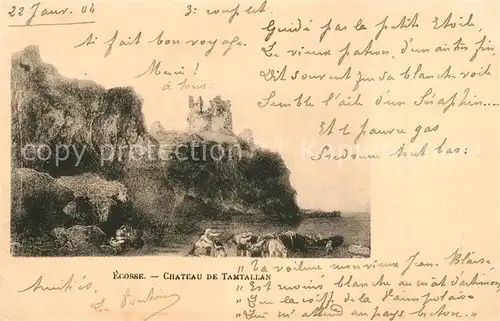 22 Janv. 04
3e couplet.
Ai fait bon voyage.
Merci!
à tous.
Guidé par la petite Etoile,
Le vieux patron, d'un air très fin,
Dit souvent que sa blanche voile
Semble l'aile d'un Séraphin.....
Et le pauvre gas
Fredonne tout bas:
ÉCOSSE. — CHATEAU DE TAMTALLAN
"La voilure mon vieux Jean-Blaise,
"Est moins blanche au mât d'artimon
"Que la coiffe de la Paimpolaise
"Qui m'attend au pays breton."
Amitiés.